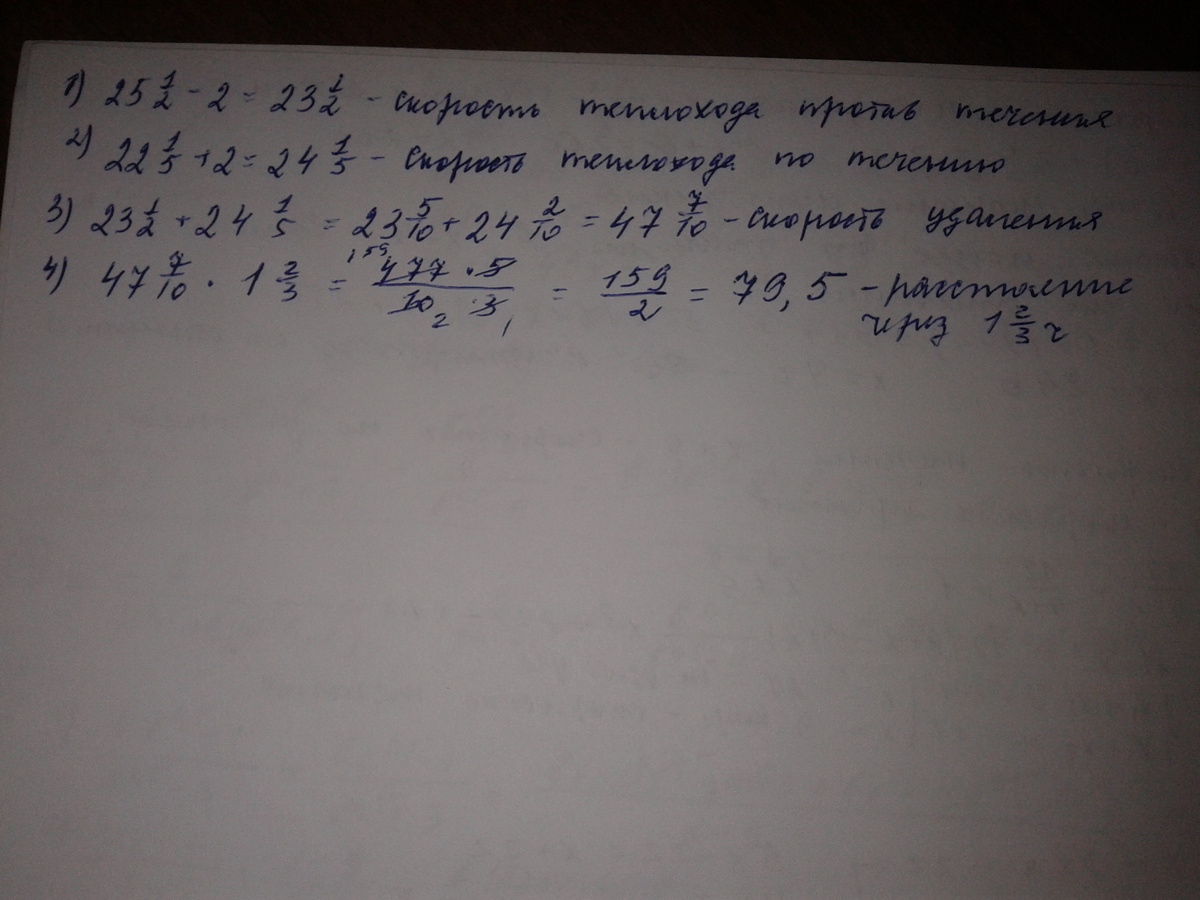 1) 25 1/2 - 2 = 23 1/2 - скорость теплохода против течения
2) 22 1/5 + 2 = 24 1/5 - скорость теплохода по течению
3) 23 1/2 + 24 1/5 = 23 5/10 + 24 2/10 = 47 7/10 - скорость удаления
4) 47 7/10 · 1 2/3 = 159 477 · 5 / 10 2 · 3 1 = 159/2 = 79,5 - расстояние
через 1 2/3 ч